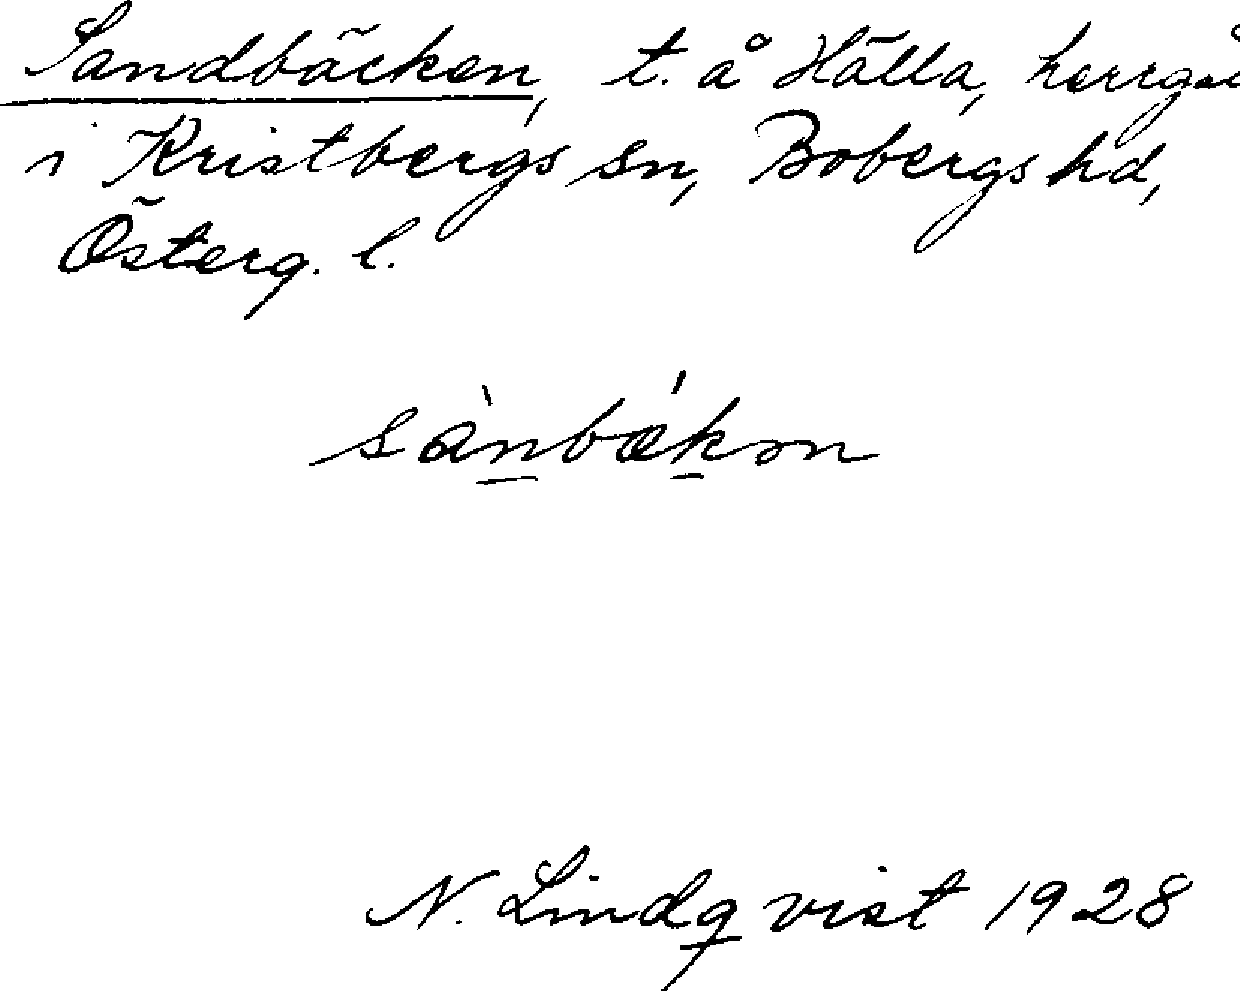 Sandbäcken, t. å Hälla, herrgå
i Kristbergs sn, Bobergs hd,
Österg. l.
sànbǽkən
N. Lindqvist 1928